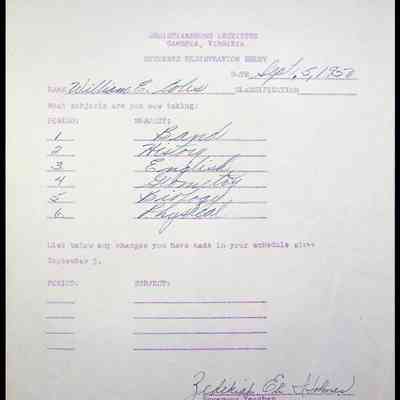 CHRISTIANSBURG INSTITUTE
CAMBRIA, VIRGINIA
STUDENTS REGISTRATION SHEET
DATE Sept. 5, 1958
NAME William E. Coles CLASSIFICATION
What subjects are you now taking:
PERIOD: SUBJECT:
1 Band
2 History
3 English
4 Geometry
5 Biology
6 Physical
List below any changes you have made in your schedule since
September 3.
PERIOD: SUBJECT:
Zedekiah E. Holmes
Homeroom Teacher